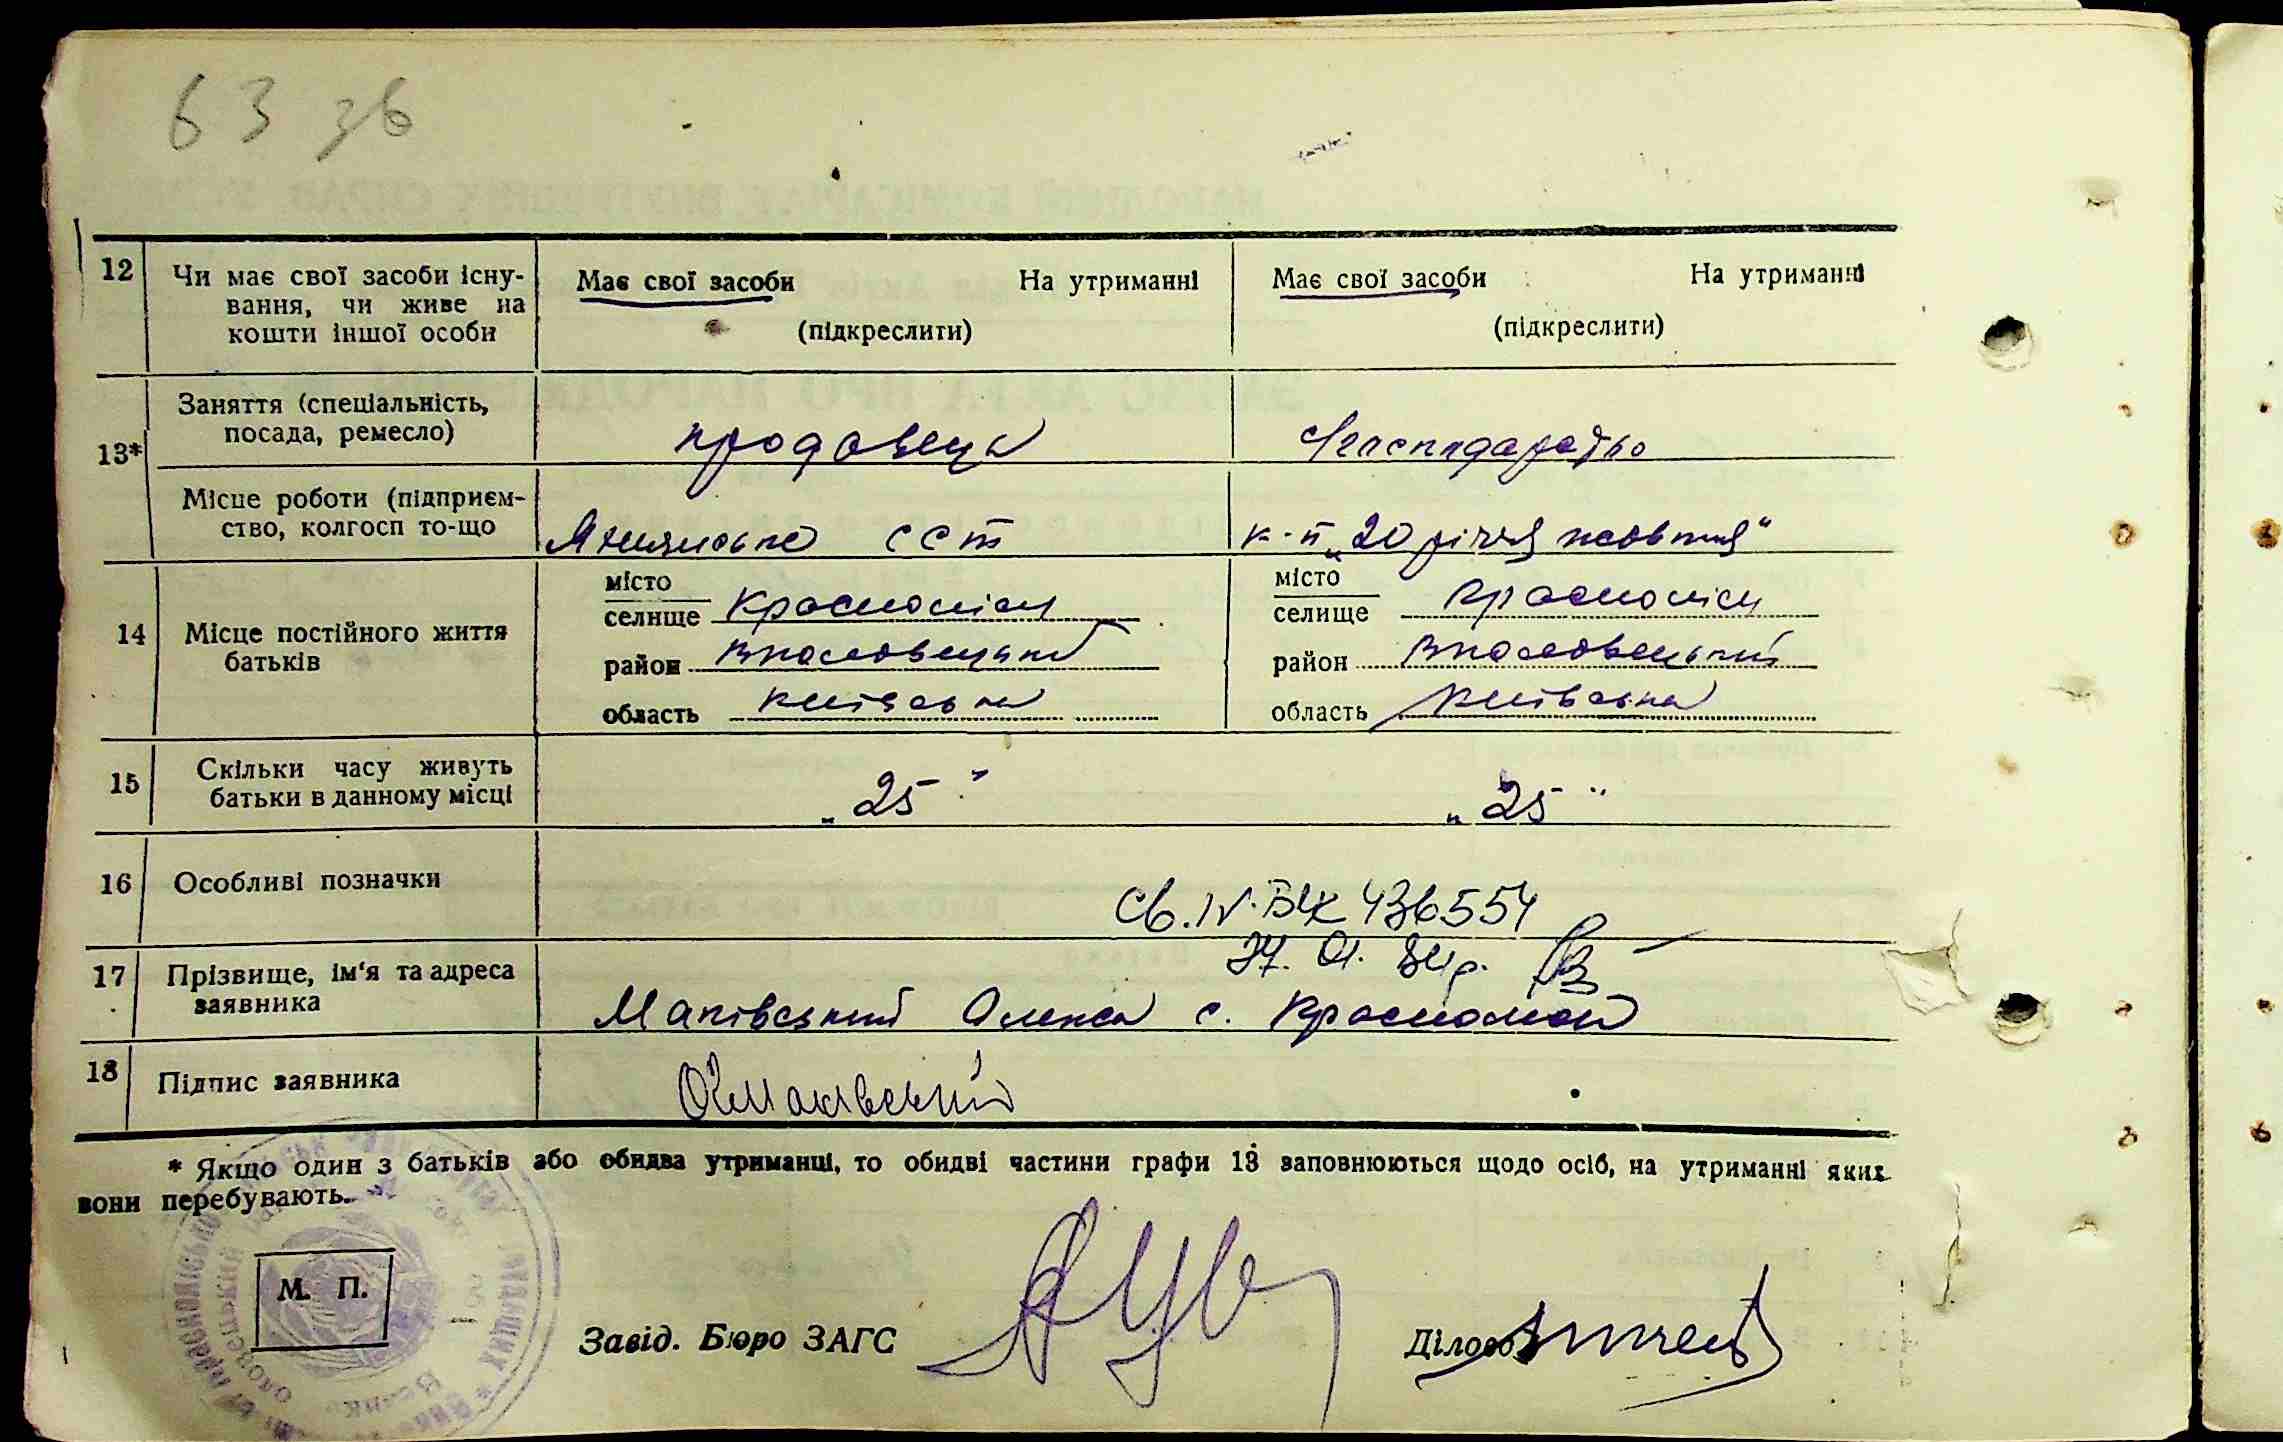 63 зв
12 Чи має свої засоби існу- Має свої засоби На утриманні Має свої засоби На утриманні
вання, чи живе на
кошти іншої особи (підкреслити) (підкреслити)
Заняття (спеціальність,
13* посада, ремесло) продавець
Місце роботи (підприєм-
ство, колгосп то-що ССТ к-п „20 річчя жовтня"
місто місто
селище Красносілці селище Красносілці
14 Місце постійного життя
батьків район район
область Київська область Київська
15 Скільки часу живуть
батьки в данному місці „25" „25"
16 Особливі позначки Св. IV-БК 436554
27. 01. 84р.
17 Прізвище, ім'я та адреса
заявника Маківський Олекса с.
18 Підпис заявника Маківський
* Якщо один з батьків або обидва утриманці, то обидві частини графи 13 заповнюються щодо осіб, на утриманні яких
вони перебувають.
М. П.
Завід. Бюро ЗАГС Діловод